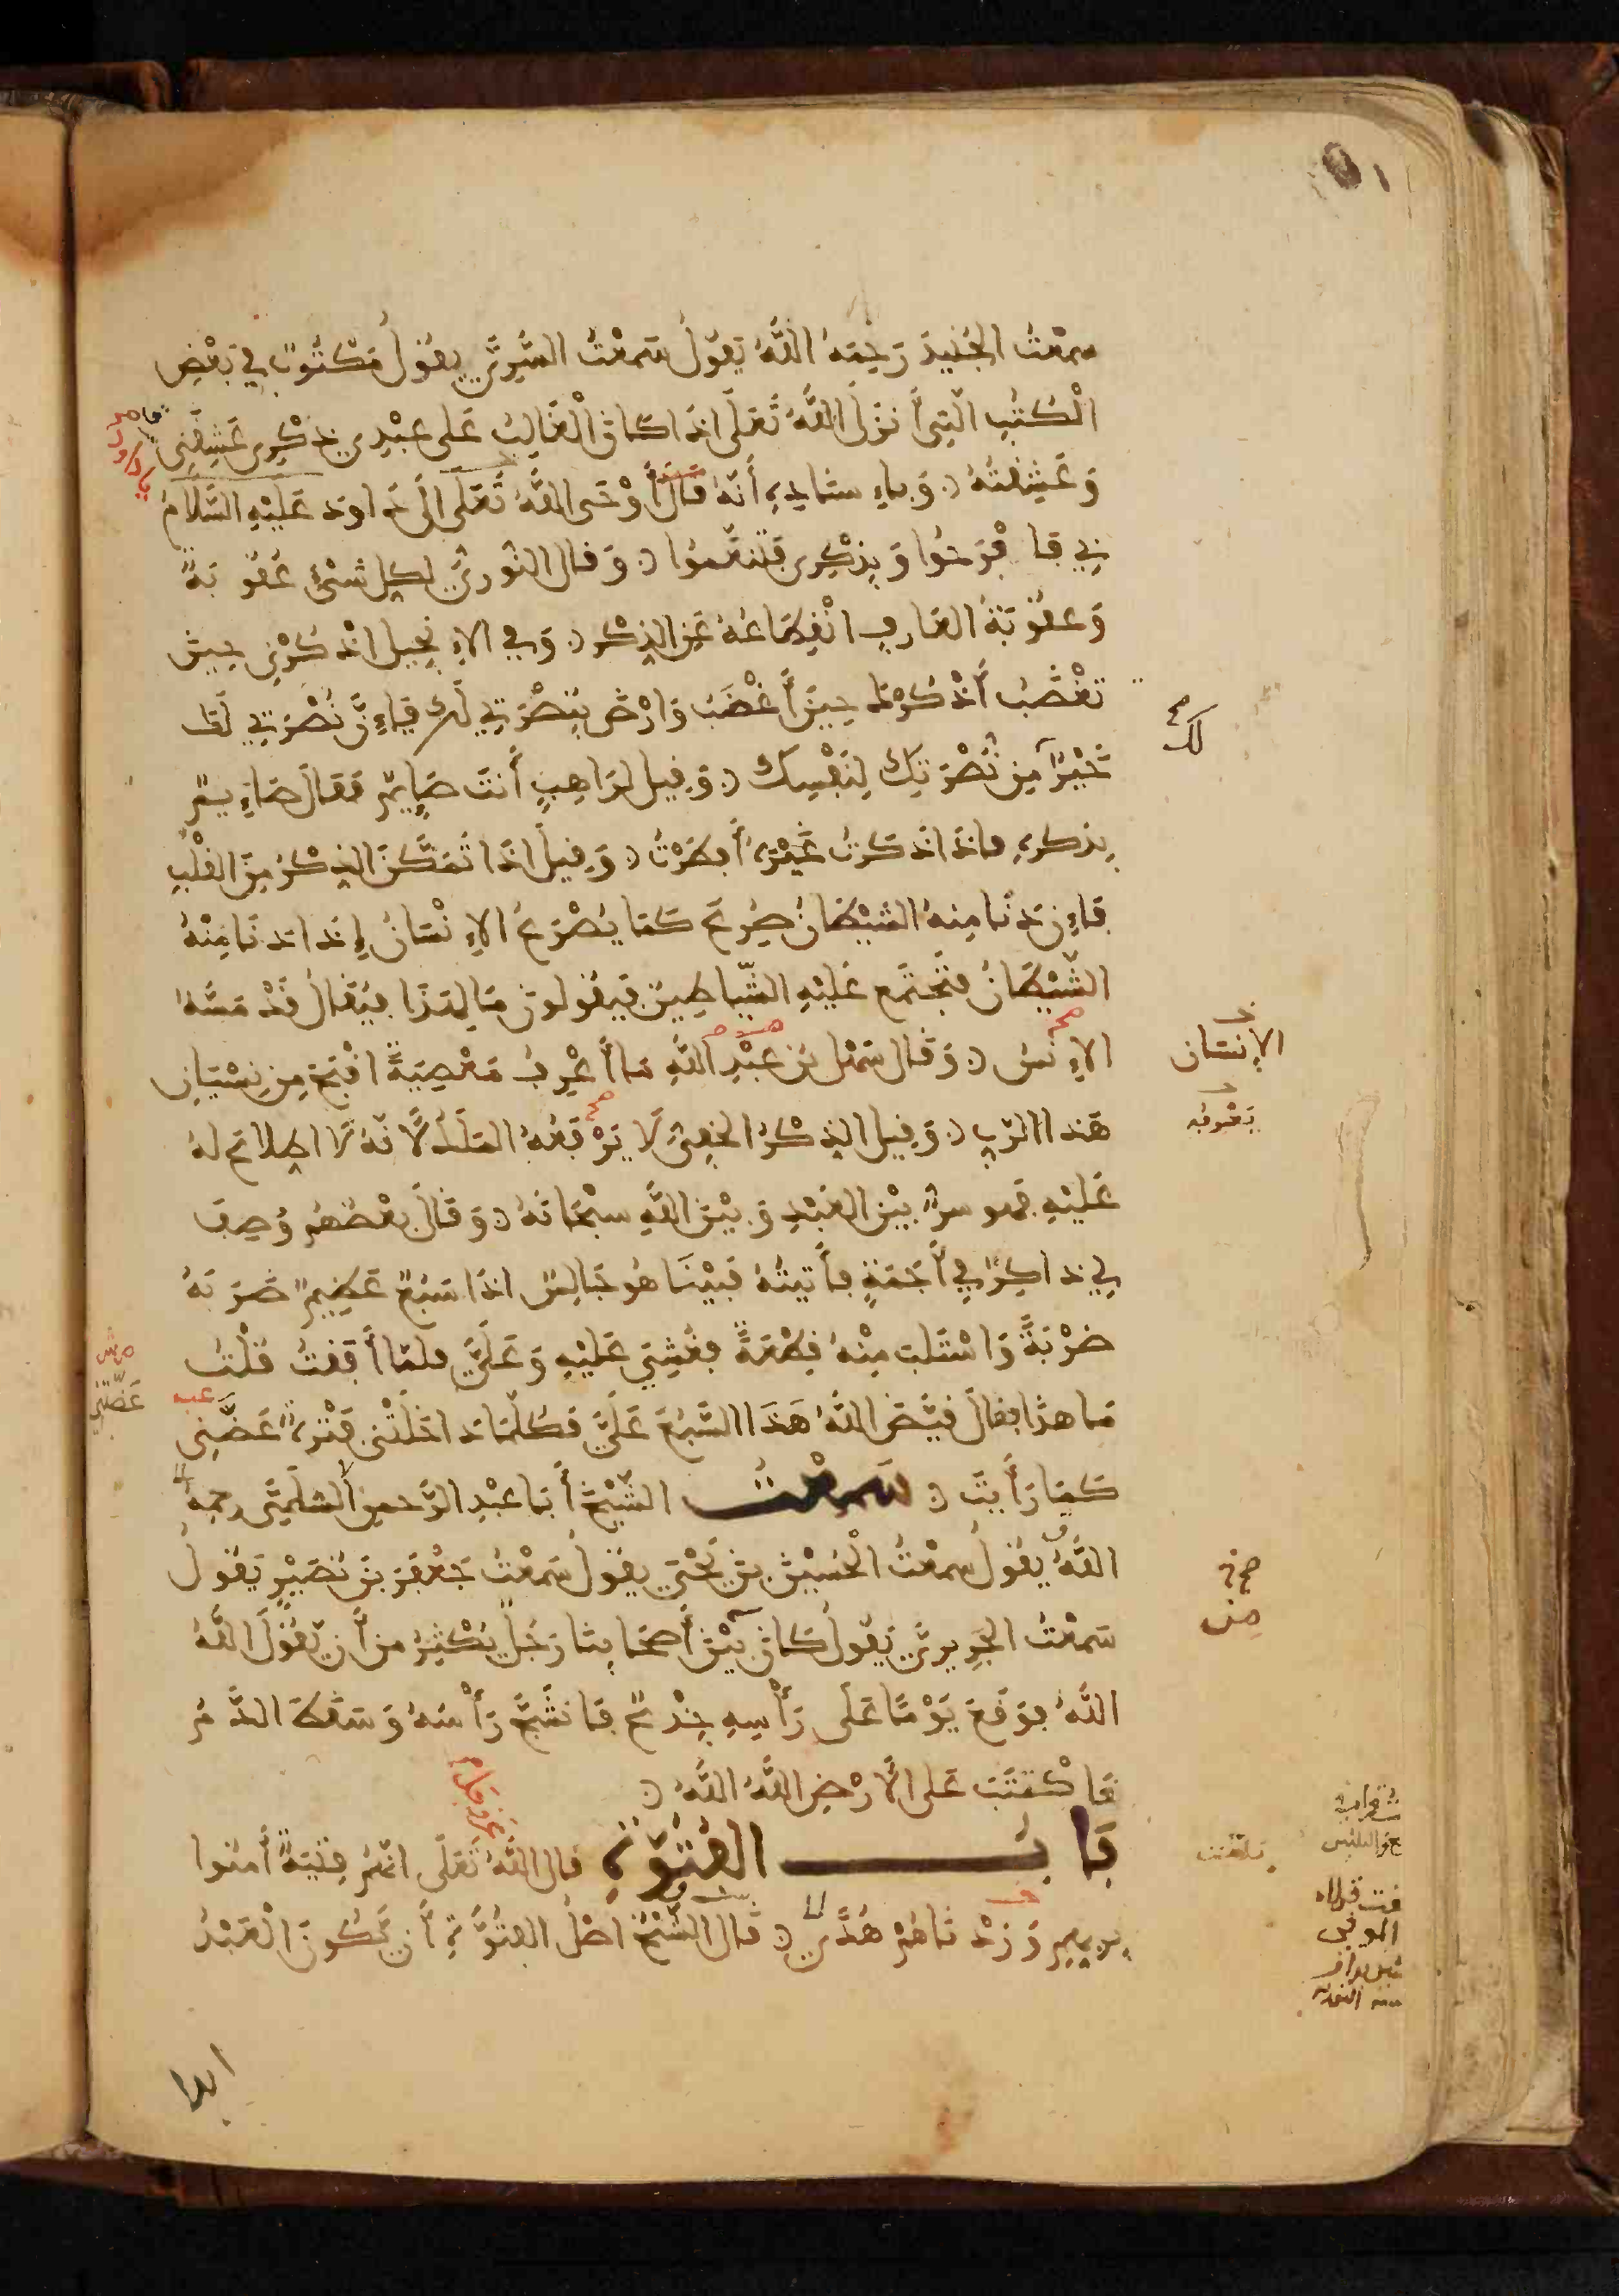 سمعْتُ الجُنَيدَ رَحِمَهُ اللَّهُ يَقُولُ سَمعْتُ السَّرِيَّ يقُولُ مَكْتُوبٌ في بَعْضِ
الْكُتُبِ الَّتِى أَنزَلَ اللَّهُ تَعَلَى اذَا كانَ الْغَالِبُ عَلى عبْدِى ذِكْرِى عَشِقَنِى
وَعَشِقْتُهُ وَبِإِسنادِهِ أَنَّهُ قَالَ أَوْحَى اللَّهُ تَعَلَى الَى دَاودَ عَلَيْهِ السَّلَامُ
بِى فافْرَحُوا وَبِذِكْرِى فَتَنَعَّمُوا وَقَال النُّورِيُّ لكِل شىْءٍ عُقُوبَةٌ
وَعقُوبَةُ العَارِفِ انْقِطَاعُهُ عَنِ الذِكْرِ وَفِي الإِنجِيل اذْكُرْنِى حِينَ
تَغْضَبُ أَذْكُرْكَ حِينَ أَغْضَبُ وَارْضَ بِنُصْرَتِي لَك فَإِنَّ نُصْرَتِي لَكَ
خَيْرٌ مِن نُصْرَتِكَ لِنَفْسِكَ وَقِيل لرَاهِبٍ أَنتَ صَايِمٌ فقَالَ صَايِمٌ
بِذكرِهِ فاذَا ذَكَرْتُ غَيْرَهُ أَفطَرْتُ وَقِيلَ اذَا تَمَكَّنَ الذِكْرُ مِنَ القَلْبِ
فَإِن دَنَا مِنهُ الشَيْطَانُ صُرِعَ كَمَا يُصْرَعُ الإِنْسَانُ إِذَا دَنَا مِنْهُ
الشَّيْطَانُ فتَجْتَمع عَلَيْهِ الشَّيَاطِينُ فيَقُولونَ مَا لِهَذَا فيُقَالُ قَدْ مَسَّهُ
الإِنسُ وَقَال سَهْل بْن عبْدِ اللَّهِ مَا أَعْرِفُ مَعْصِيَةً اقْبَحَ مِن نِسْيَانِ
هَذا الرَّبِ وَقِيل الذِكْرُ الخَفِىُّ لَا يَرْفَعُهُ المَلَكُ لأَنَّهُ لَا اطِلاعَ لهُ
عَلَيْهِ فَهو سرٌّ بيْن العَبْدِ وَبيْن اللَّهِ سبْحَانَهُ وَقَالَ بعْضُهُم وُصِفَ
لِي ذاكِرٌ فِي أَجَمَةٍ فأَتيتُهُ فَبَيْنَا هُو جَالِسٌ اذَا سَبُعٌ عَظِيمٌ ضَرَبَهُ
ضَرْبَةً وَاسْتَلبَ مِنْهُ قِطْعَةً فغُشِيَ عَلَيْهِ وَعَلَىَّ فلمَّا أَفَقتُ قُلْتُ
مَا هذَا فقالَ قيَّضَ اللَّهُ هَذَا السَّبُعَ عَلَىَّ فكُلَّمَا دَاخَلَتْنِى فَتْرَةٌ عَضَّنِى
كَمَا رَأَيتَ سَمِعْتُ الشَّيْخَ أَبَا عبْدِ الرَّحمنِ السُّلَمِىَّ رحِمهُ
اللَّهُ يقُولُ سمعْتُ الْحُسَيْنَ بنَ يَحْيَى يقُولُ سَمعْتُ جَعْفَرَ بنَ نُصَيْرٍ يَقُولُ
سَمعْتُ الجَرِيرِيَّ يَقُولُ كَانَ بيْنَ أَصحَابِنَا رَجُلٌ يُكْثِرُ منْ أَن يَّقُولَ اللَّهُ
اللَّهُ فوَقَعَ يَوْمًا عَلَى رَأْسِهِ جِذْعٌ فَانشَجَّ رَأْسُهُ وَسَقَطَ الدَّمُ
فَاكْتتَبَ عَلى الأَرْضِ اللَّهُ اللَّهُ
بَابُ الفُتُوَّةِ قال اللَّهُ تَعَلَى انَّهُمْ فِتْيَةٌ أَمَنُوا
بِرَبِهِم وَزِدْنَاهُمْ هُدًى قَالَ الشَّيْخُ أَصْلُ الفُتُوَّةِ أَن يَّكُونَ الْعَبْدُ
ابدا
لك
الإنسَان
صح
من
عَضَّتْنِي